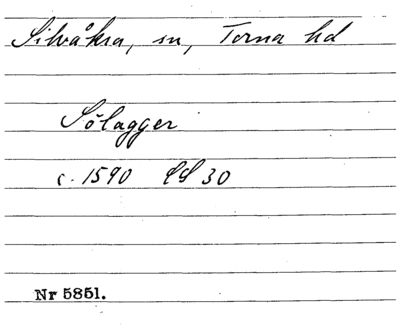 Silvåkra, sn, Torna hd
Sölagger
c. 1590 30
Nr 5851.